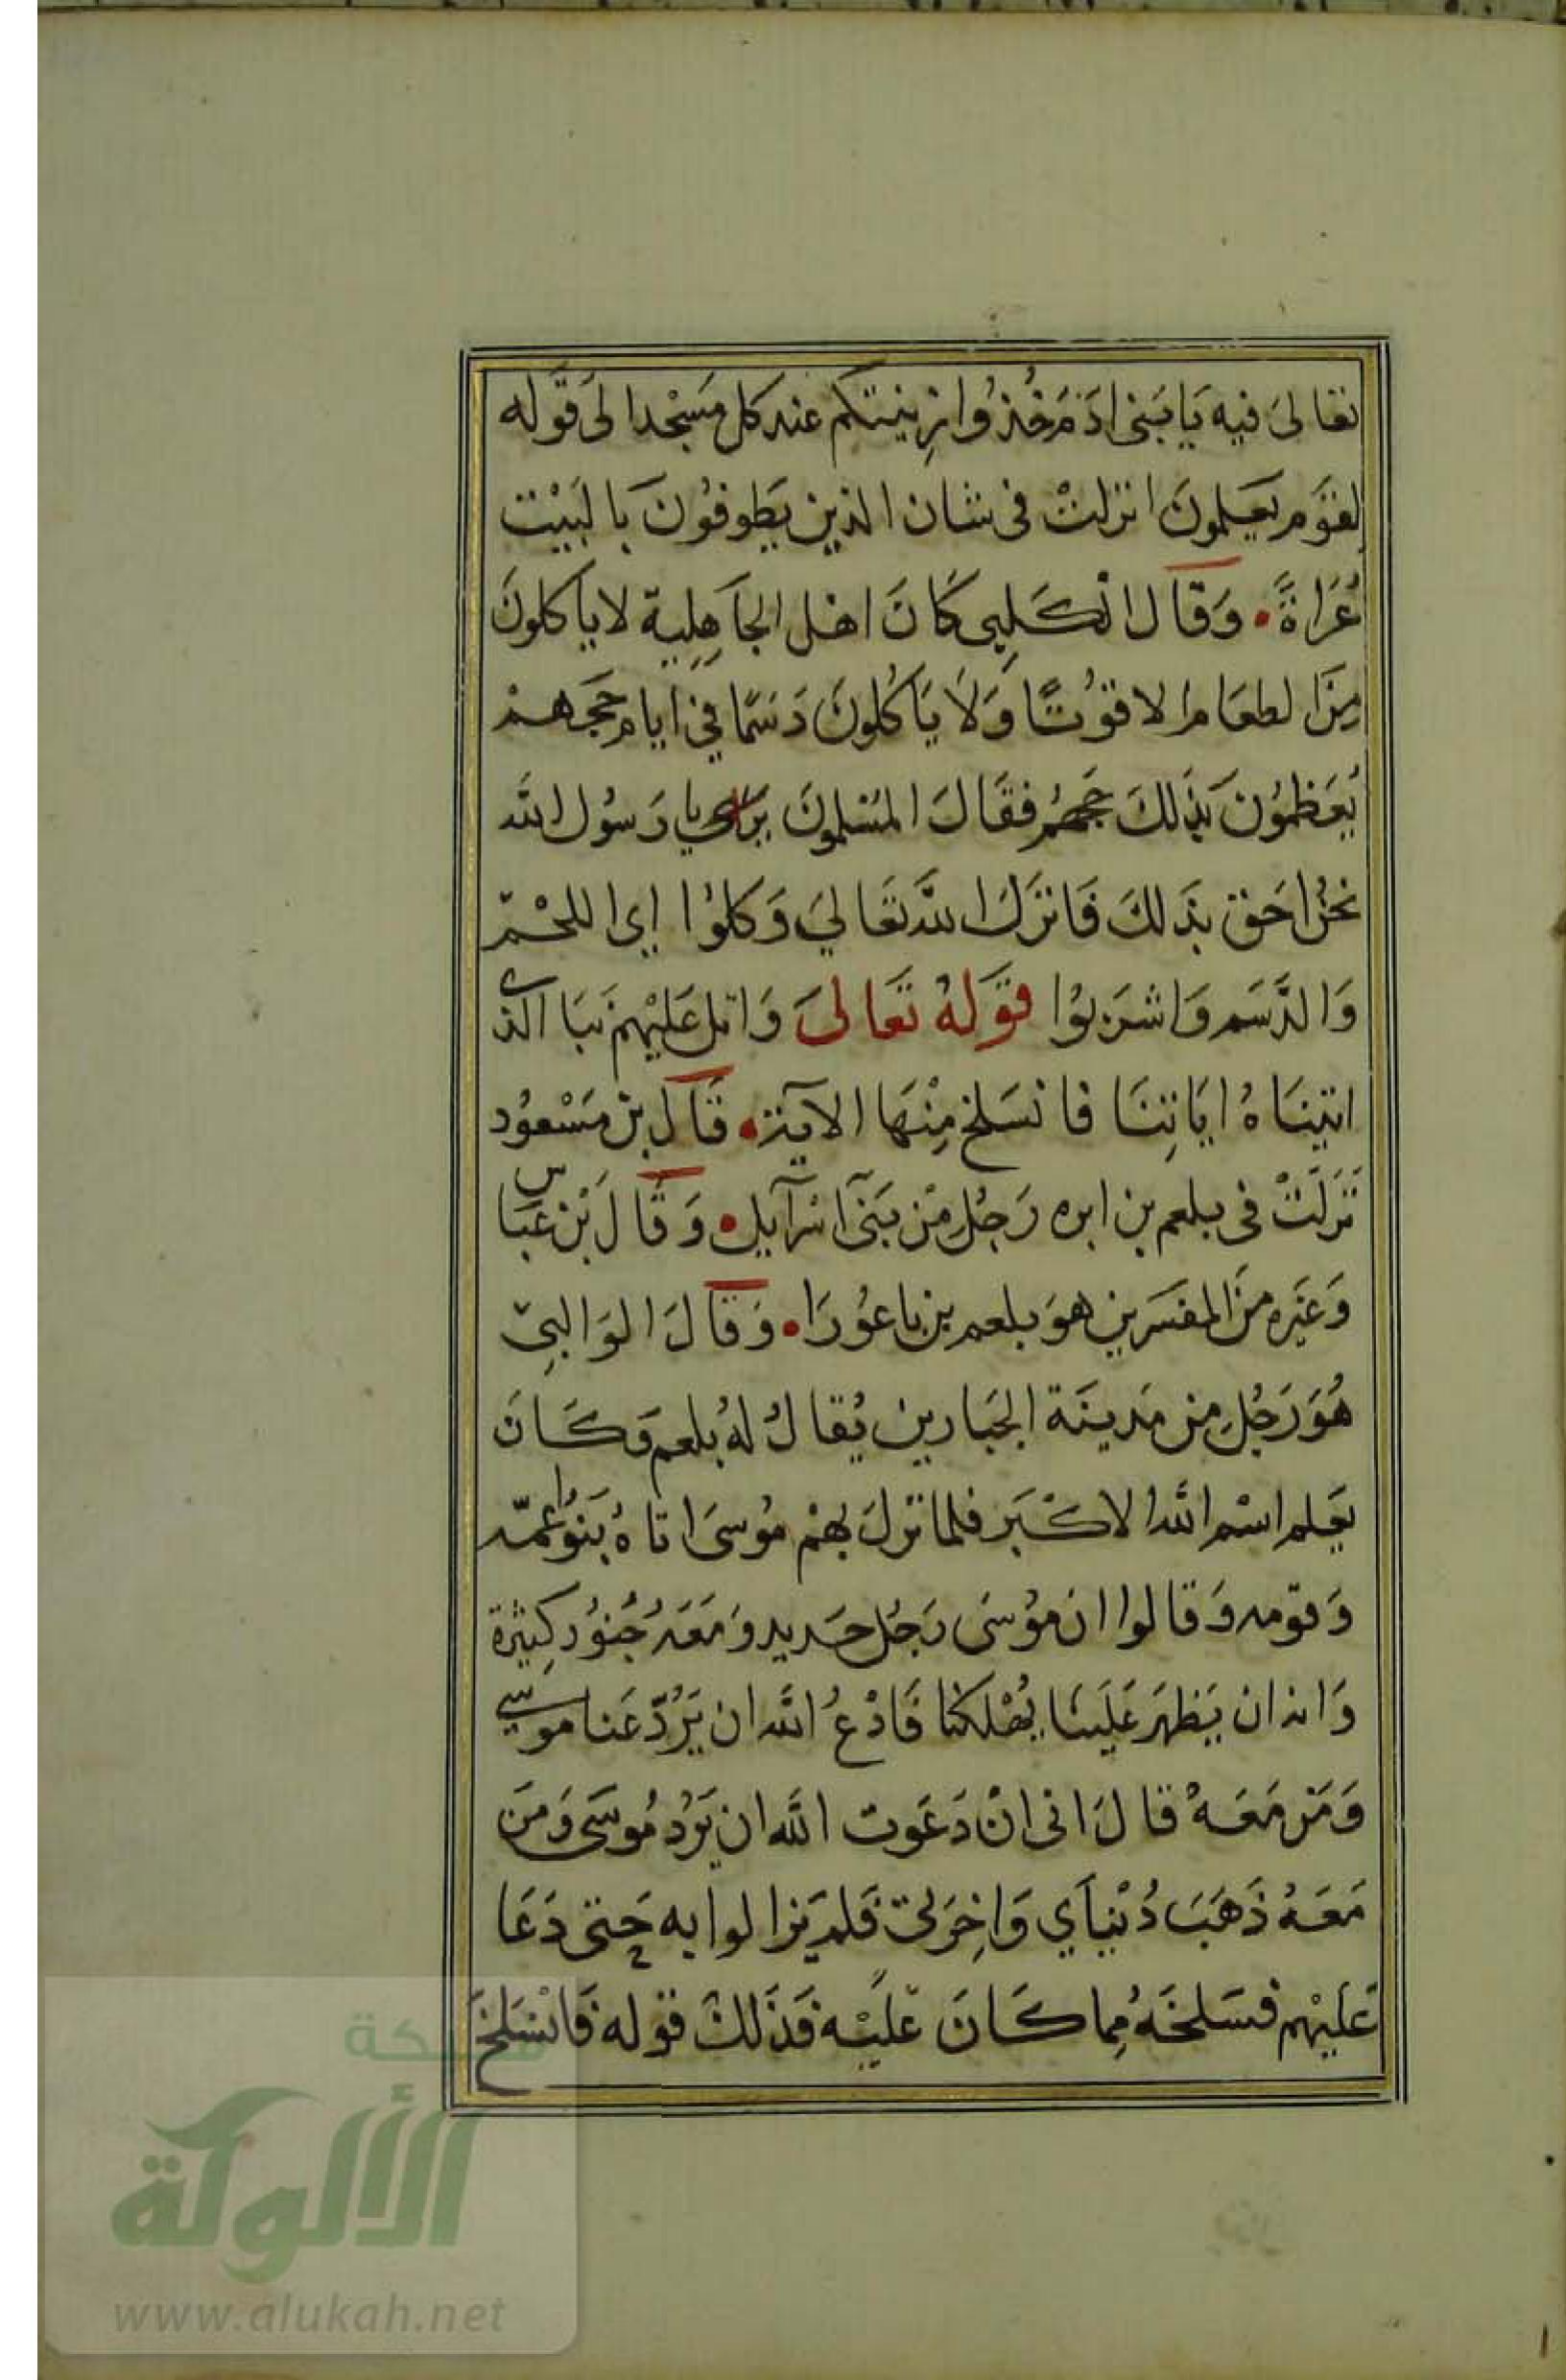 تعالى فيه يَا بَنى ادَمَ خُذُوا زِينتكم عند كل مَسْجد الى قَوله
لقوَم يَعلمونَ انزلتْ فى شان الذين يَطوفُونَ بالبَيْت
عُرَاةً وَقال الكَلبِى كَانَ اهل الجَاهِلِية لا ياكلونَ
مِنَ الطعَام الا قوُتًا وَلاَ يَاكُلونَ دَسَمًا في ايام حَجهمْ
يُعَظمُونَ بذَلكَ حَجهُم فقَالَ المسْلمونَ يا رَسُول الله
نحنُ احَق بذَلكَ فَانزَلَ اللهَ تعَالىَ وَكلوُا اى اللحْم
وَالدَّسَم وَاشرَبوُا قَولهُ تعَالىَ وَاتل عَليْهمْ نَبَا الذى
اتيناهُ ايَاتِنَا فانسَلخ مِنْهَا الآيَة قَالَ بن مَسْعوُد
نَزَلَتْ فى بلعم بن ابره رَجُلِ مِنْ بَنى اسْرآيل وَقَالَ بْن عَباس
وَغيَره منَ المفسَرين هوَ بلعم بن باعوُرَا وَقَالَ الوَالبىّ
هُوَ رَجُلِ من مَدينَة الجبَارين يُقالُ لهُ بلعم وَكَانَ
يَعلم اسْم الله الاكْبَر فلما نزلَ بهمْ مُوسىَ اتاهُ بَنوُا عمّه
وَقومه وَقالوا ان موُسَى رَجُل حَديد وَمَعَهُ جُنوُد كِثيْرة
وَانه ان يَظهَر عَليَنا يُهْلكنا فَادْعُ الله ان يَرُدّ عَنا موسى
وَمَن مَعَهُ قالَ انى انْ دَعَوت الله ان يَرُد مُوسَى وَمَن
مَعَهُ ذَهَبَت دُنْيَاي وَاخِرَتى فَلم يَزالوا به حَتى دَعَا
عَليْهم فسَلخَهُ مِما كَانَ عَليْه فَذَلكَ قوله فَانسَلخَ
الألوكة
www.alukah.net